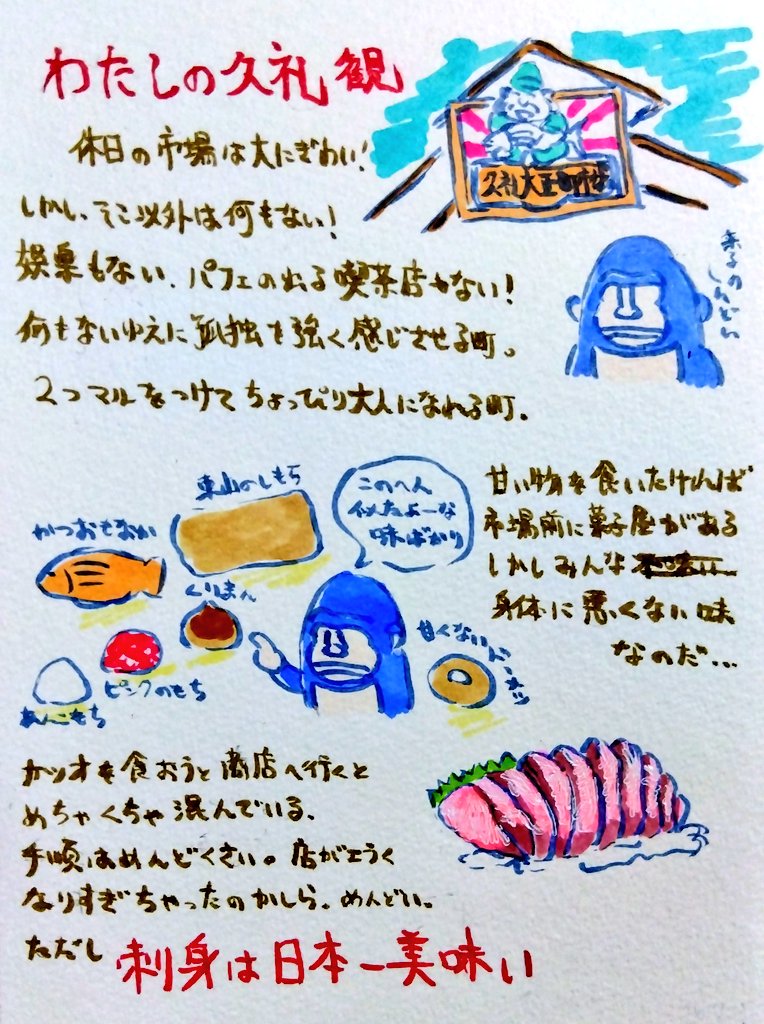 わたしの久礼観
休日の市場は大にぎわい!
しかし、そこ以外は何もない!
娯楽もない、パフェの出る喫茶店もない!
何もないゆえに孤独を強く感じさせる町。
2つマルをつけてちょっぴり大人になれる町。
久礼大正町市場
菓子の
しんどい
東山のしもち
かつおもなか
くりまん
ピンクのもち
あんこもち
このへん
似たよーな
味ばかり
甘くない
ドーナツ
甘い物を食いたければ
市場前に菓子屋がある
しかしみんな
身体に悪くない味
なのだ…
カツオを食おうと商店へ行くと
めちゃくちゃ混んでいる、
手順はめんどくさい。店がエラく
なりすぎちゃったのかしら。めんどい。
ただし 刺身は日本一美味い